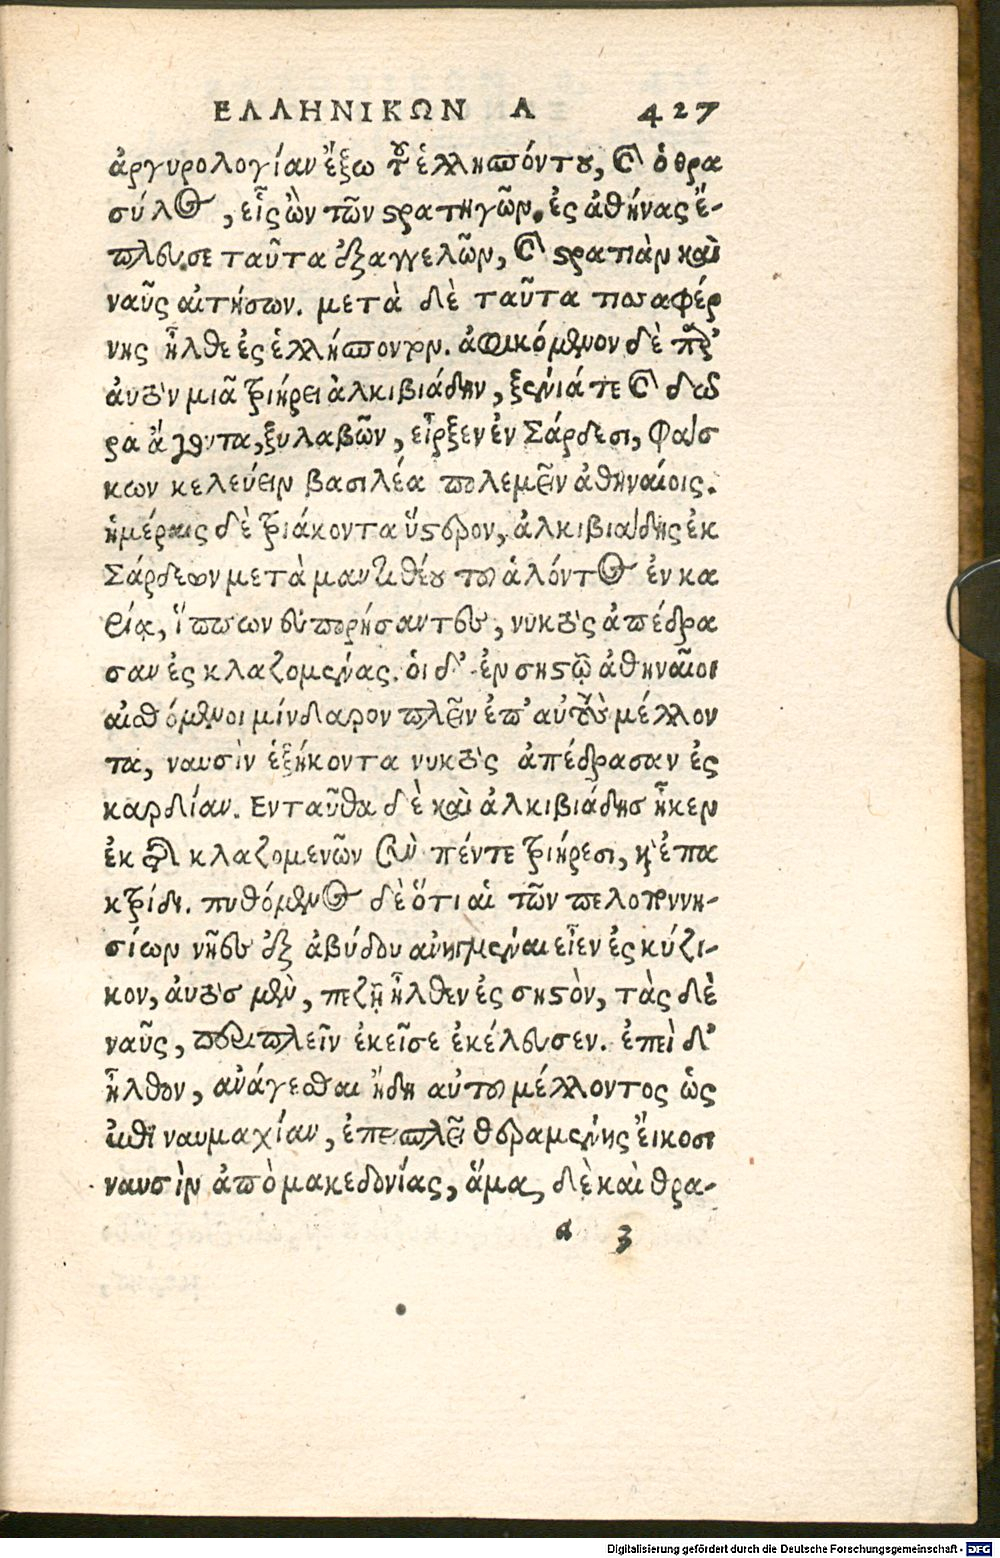 ΕΛΛΗΝΙΚΩΝ Α 427
ἀργυρολογίαν ἔξω τοῦ ἑλλησπόντου, καὶ ὁ θρα
σύλος, εἷς ὢν τῶν στρατηγῶν, ἐς ἀθήνας ἔ-
πλευσε ταῦτα ἐξαγγελῶν, καὶ στρατιὰν καὶ
ναῦς αἰτήσων. μετὰ δὲ ταῦτα τισσαφέρ
νης ἦλθε ἐς ἑλλήσποντον. ἀφικόμενον δὲ παρ’
ἀυτὸν μιᾶ τριήρει ἀλκιβιάδην, ξένιά τε καὶ δῶ
ρα ἄγοντα, ξυλαβῶν, εἷρξεν ἐν Σάρδεσι, φάσ
κων κελεύειν βασιλέα πολεμεῖν ἀθηναίοις.
ἡμέραις δὲ τριάκοντα ὕστερον, ἀλκιβιάδης ἐκ
Σάρδεων μετὰ μαντιθέου τοῦ ἁλόντος ἐν κα
ρίᾳ, ἵππων εὐπορήσαντες, νυκτὸς ἀπέδρα
σαν ἐς κλαζομενάς. ὁι δ’ ἐν σηστῷ ἀθηναῖοι
αἰσθόμενοι μίνδαρον πλεῖν ἐπ’ αὐτοὺς μέλλον
τα, ναυσὶν ἑξήκοντα νυκτὸς ἀπέδρασαν ἐς
καρδίαν. Ενταῦθα δὲ καὶ ἀλκιβιάδησ ἧκεν
ἐκ τῶν κλαζομενῶν σὺν πέντε τριήρεσι, καὶ ἐπα
κτρίδι. πυθόμενος δὲ ὅτι αἱ τῶν πελοποννη-
σίων νῆες ἐξ ἀβύδου ἀνηγμέναι εἶεν ἐς κύζι-
κον, ἀυτὸσ μὲν, πεζῇ ἦλθεν ἐς σηστὸν, τὰς δὲ
ναῦς, περιπλεῖν ἐκεῖσε ἐκέλευσεν. ἐπεὶ δ’
ἦλθον, ἀνάγεσθαι ἤδη αὐτοῦ μέλλοντος ὡς
ἐπὶ ναυμαχίαν, ἐπεισπλεῖ θηραμένης ἔικοσι
ναυσὶν ἀπὸ μακεδονίας, ἅμα, δὲ καὶ θρα-
a 3
Digitalisierung gefördert durch die Deutsche Forschungsgemeinschaft - DFG